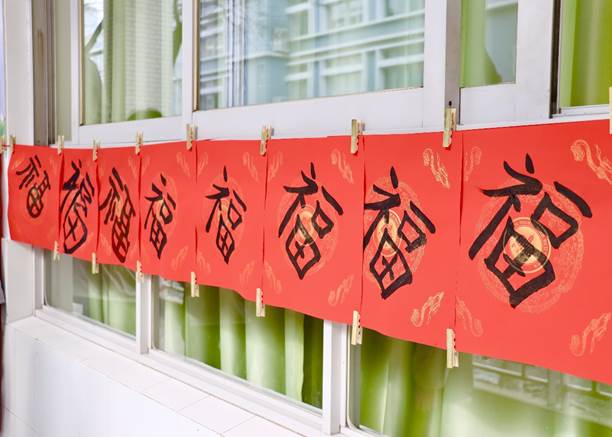 福 福 福 福 福 福 福 福